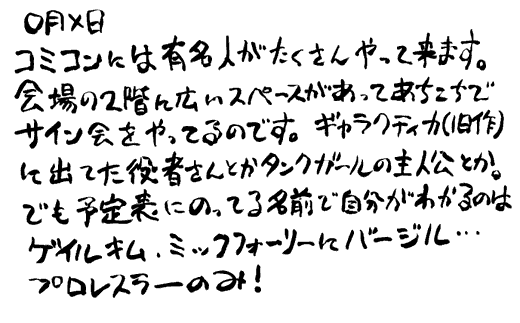 〇月×日
コミコンには有名人がたくさんやって来ます。
会場の2階に広いスペースがあってあちこちで
サイン会をやってるのです。ギャラクティカ(旧作)
に出てた役者さんとかタンクガールの主人公とか。
でも予定表にのってる名前で自分がわかるのは
ゲイルキム、ミックフォーリーにバージル…
プロレスラーのみ!